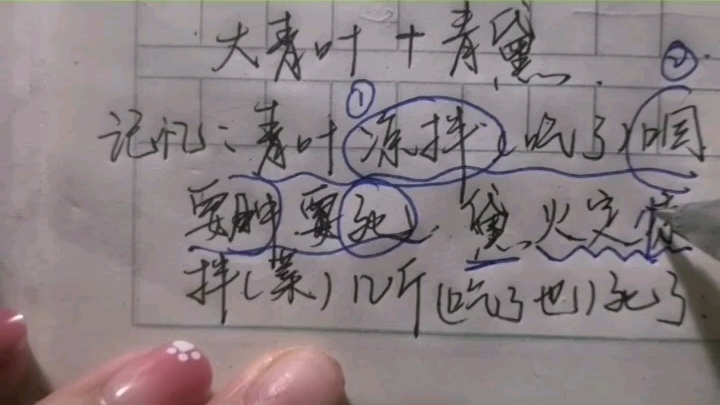 大青叶+青黛.
①
②
记忆:青叶凉拌(吃了)咽
要肿要死. 黛火定惊
拌(菜)几斤(吃了也)死了